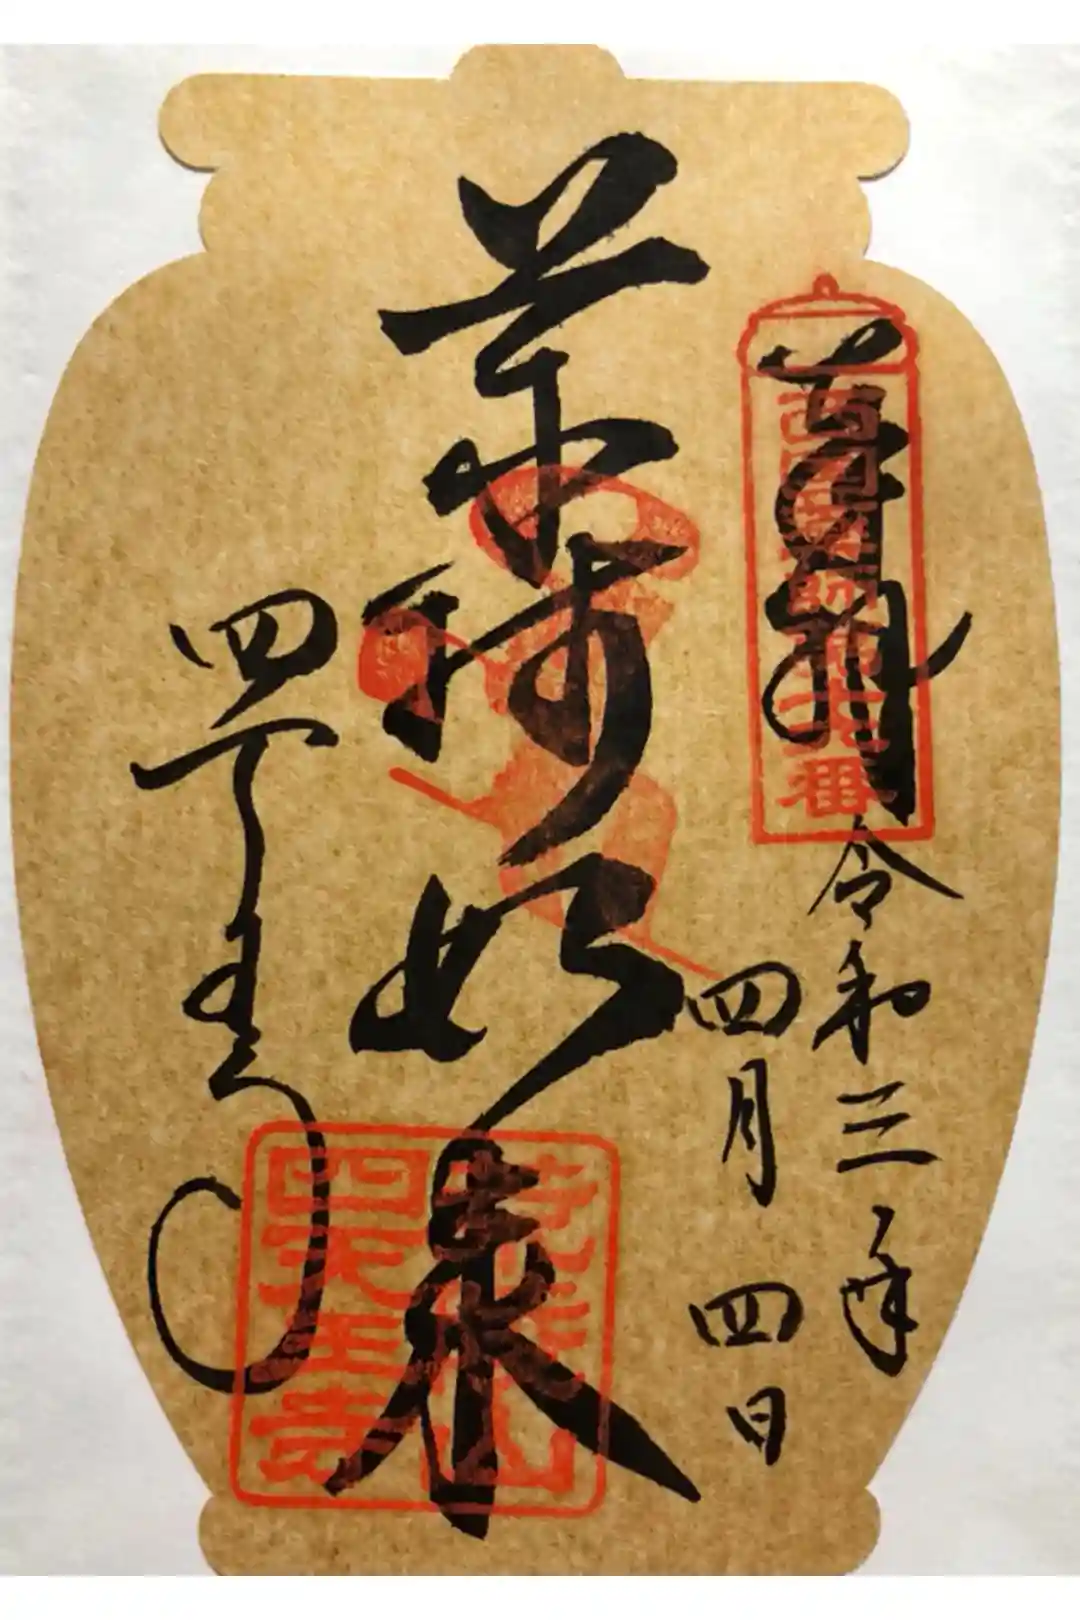 西国薬師第十六番
令和三年
四月四日
薬師如来
四天王寺
荒陵山
四天王寺